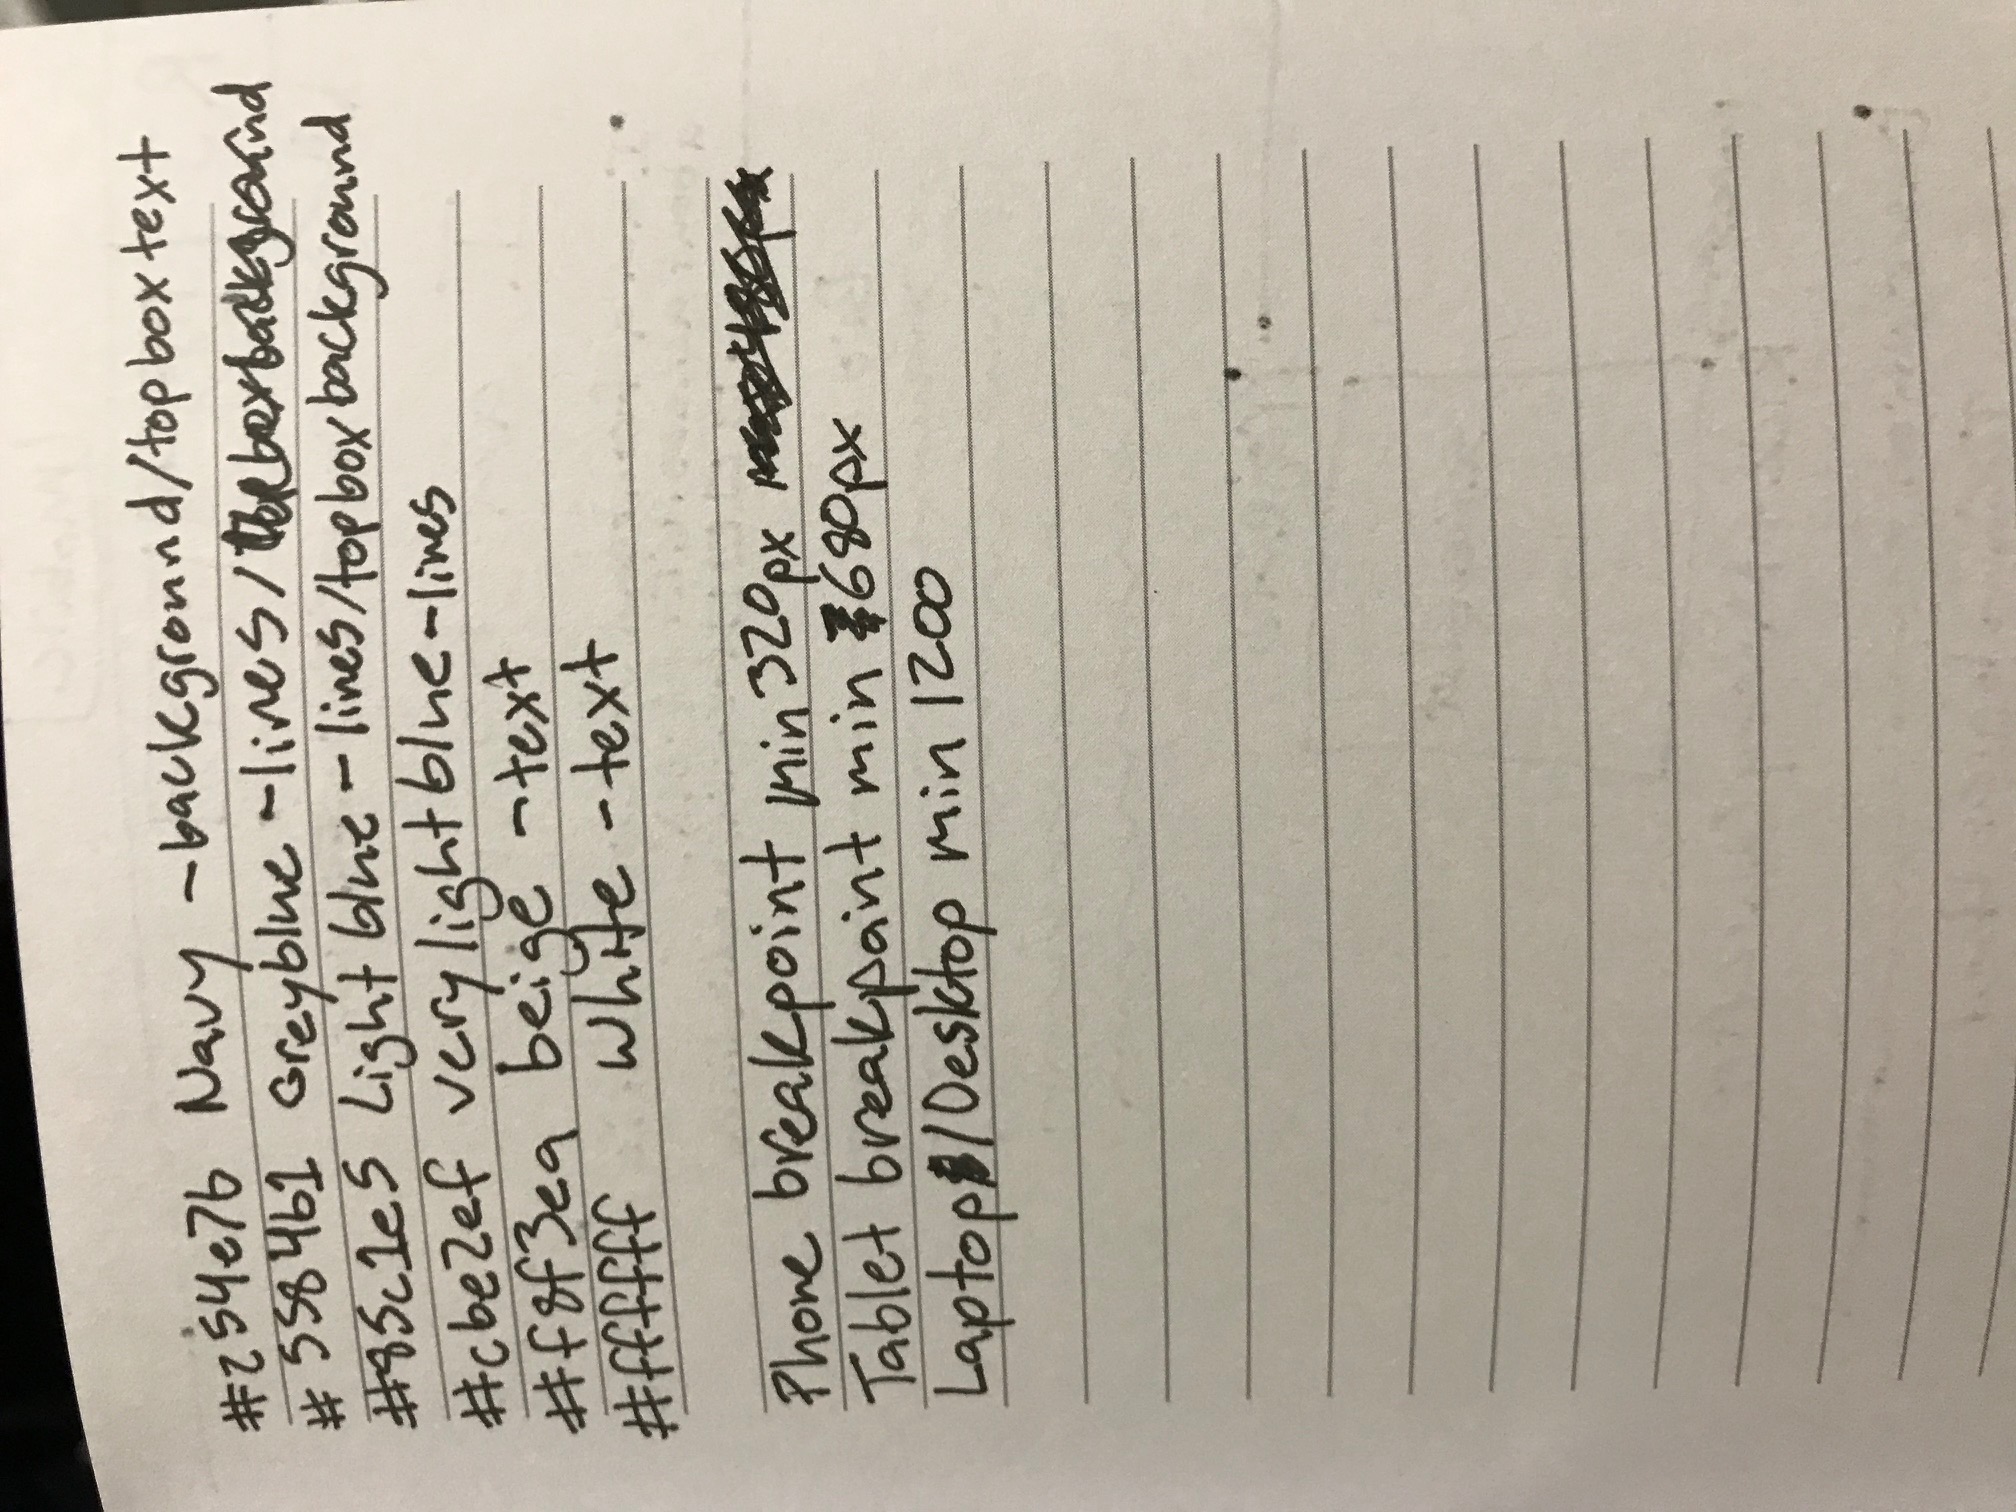 #254e7b Navy - background/top box text
#5584b1 Greyblue - lines/top box background
#85c1e5 Light blue - lines/top box background
#cbe2ef very light blue - lines
#f8f3ea beige - text
#ffffff White - text
Phone breakpoint min 320px max 480px
Tablet breakpoint min 680px
Laptop/Desktop min 1200